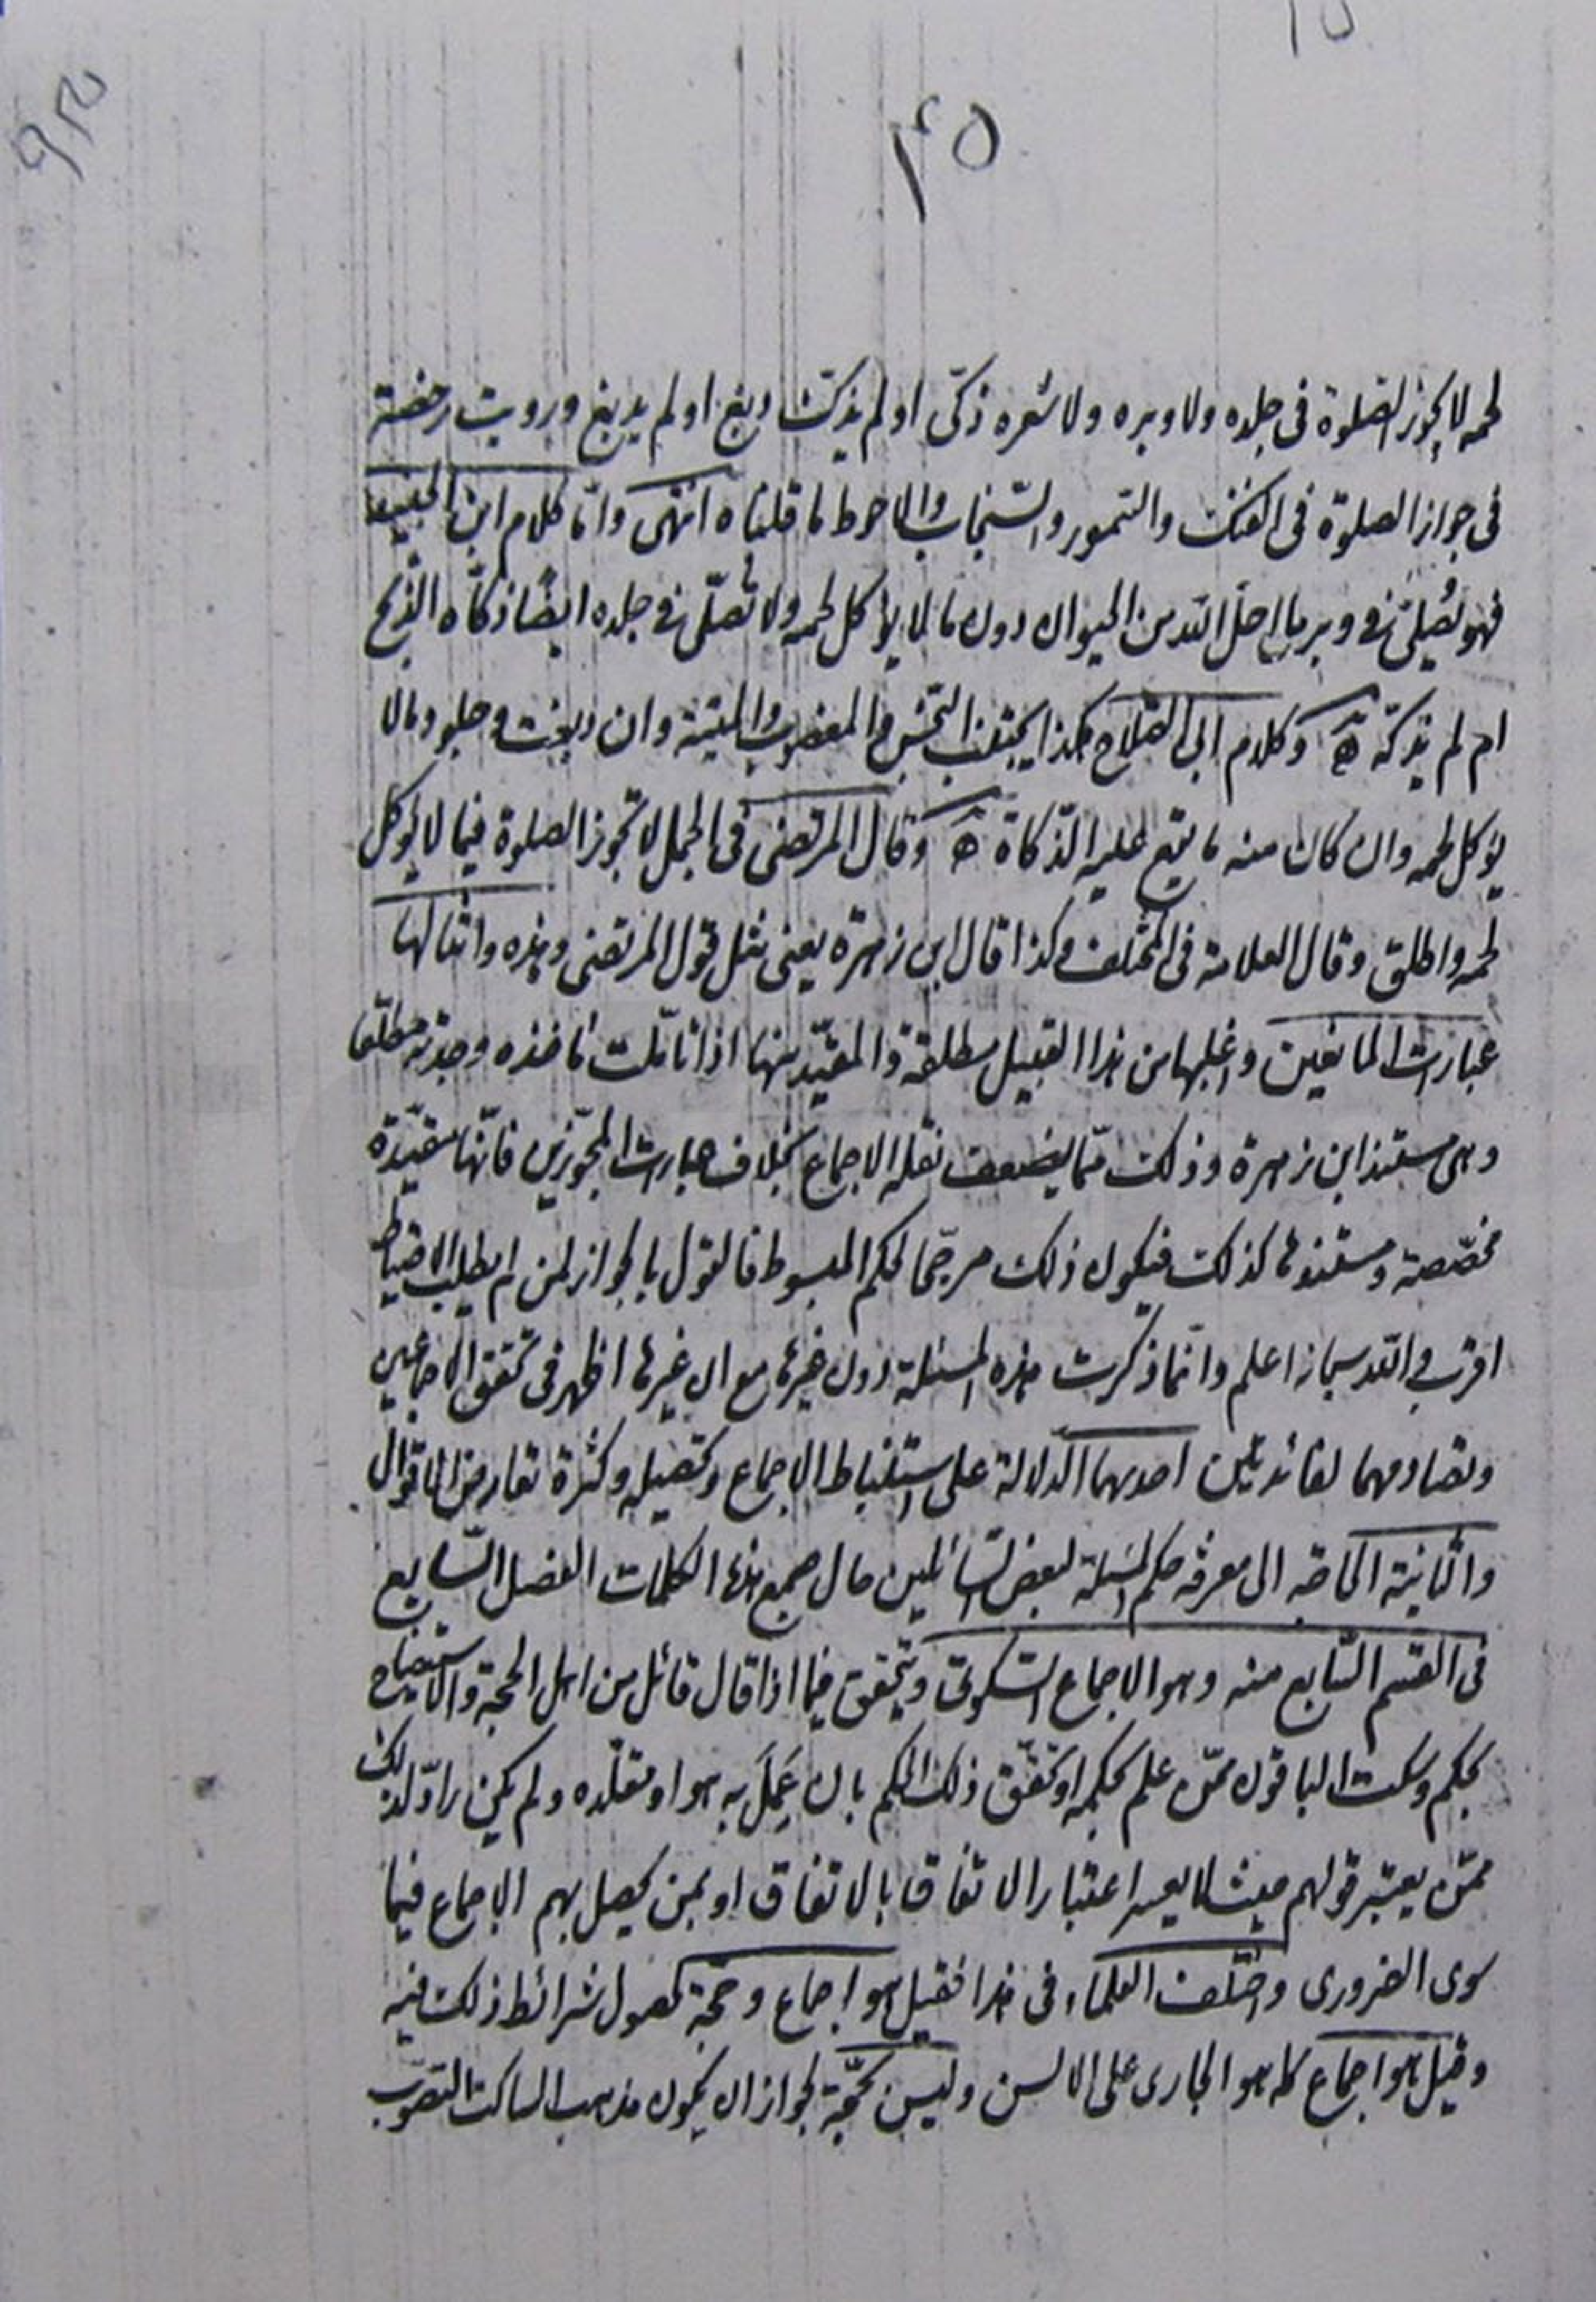 ٤٥
لحمه لا يجوز الصلوة فى جلده ولا وبره ولا شعره ذكّى او لم يذكّ دبغ او لم يدبغ ورويت رخصة
فى جواز الصلوة فى الفنك والسّمور والسّنجاب والاحوط ما قلناه انتهى وامّا كلام ابن الجنيد
فهو يُصلّى فى وبر ما احلّ الله من الحيوان دون ما لا يؤكل لحمه ولا تُصلّى فى جلده ايضًا ذكّاه الذّبح
ام لم يذكّه ه‍ وكلام ابى الصّلاح هكذا يجتنب النّجس والمغصوب والميتة وان دبغت وجلود ما لا
يؤكل لحمه وان كان منه ما يقع عليه الذّكاة ه‍ وقال المرتضى فى الجمل لا تجوز الصلوة فيما لا يؤكل
لحمه واطلق وقال العلامة فى المختلف وكذا قال ابن زهرة يعنى مثل قول المرتضى وهذه وامثالها
عبارات المانعين واغلبها من هذا القبيل مطلقة والمقيّد منها اذا تامّلت ماخذه وجدته مطلقا
وهى مستند ابن زهرة وذلك ممّا يضعف نقله الاجماع بخلاف عبارات المجوّزين فانّها مقيّدة
مخصّصة ومستندها كذلك فيكون ذلك مرجّحا لحكم المبسوط فالقول بالجواز لمن لم يطلب الاحتياط
اقرب والله سبحانه اعلم وانّما ذكرت هذه المسئلة دون غيرها مع ان غيرها اظهر فى تحقق الاجماعين
وتصادمهما لفائدتين احديهما الدّلالة على استنباط الاجماع وتحصيله وكثرة تعارض الاقوال
والثانية الحاجة الى معرفة حكم المسئلة لبعض السّائلين حال جمع هذه الكلمات الفصل السّابع
فى القسم السّابع منه وهو الاجماع السّكوتى ويتحقق فيما اذا قال قائل من اهل الحجة والاستيضاح
بحكم وسكت الباقون ممّن علم بحكمه او تحقّق ذلك الحكم بان عَمِلَ به هو او مقلّده ولم يكن رادّ لذلك
ممّن يعتبر قولهم حيث لا يعسر اعتبار الاتفاق بالاتفاق او بمن يحصل بهم الاجماع فيما
سوى الضرورى واختلف العلماء فى هذا فقيل هو اجماع وحجّة لحصول شرائط ذلك فيه
وقيل هو اجماع كما هو الجارى على الالسن وليس بحجّة لجواز ان يكون مذهب الساكت التصويب